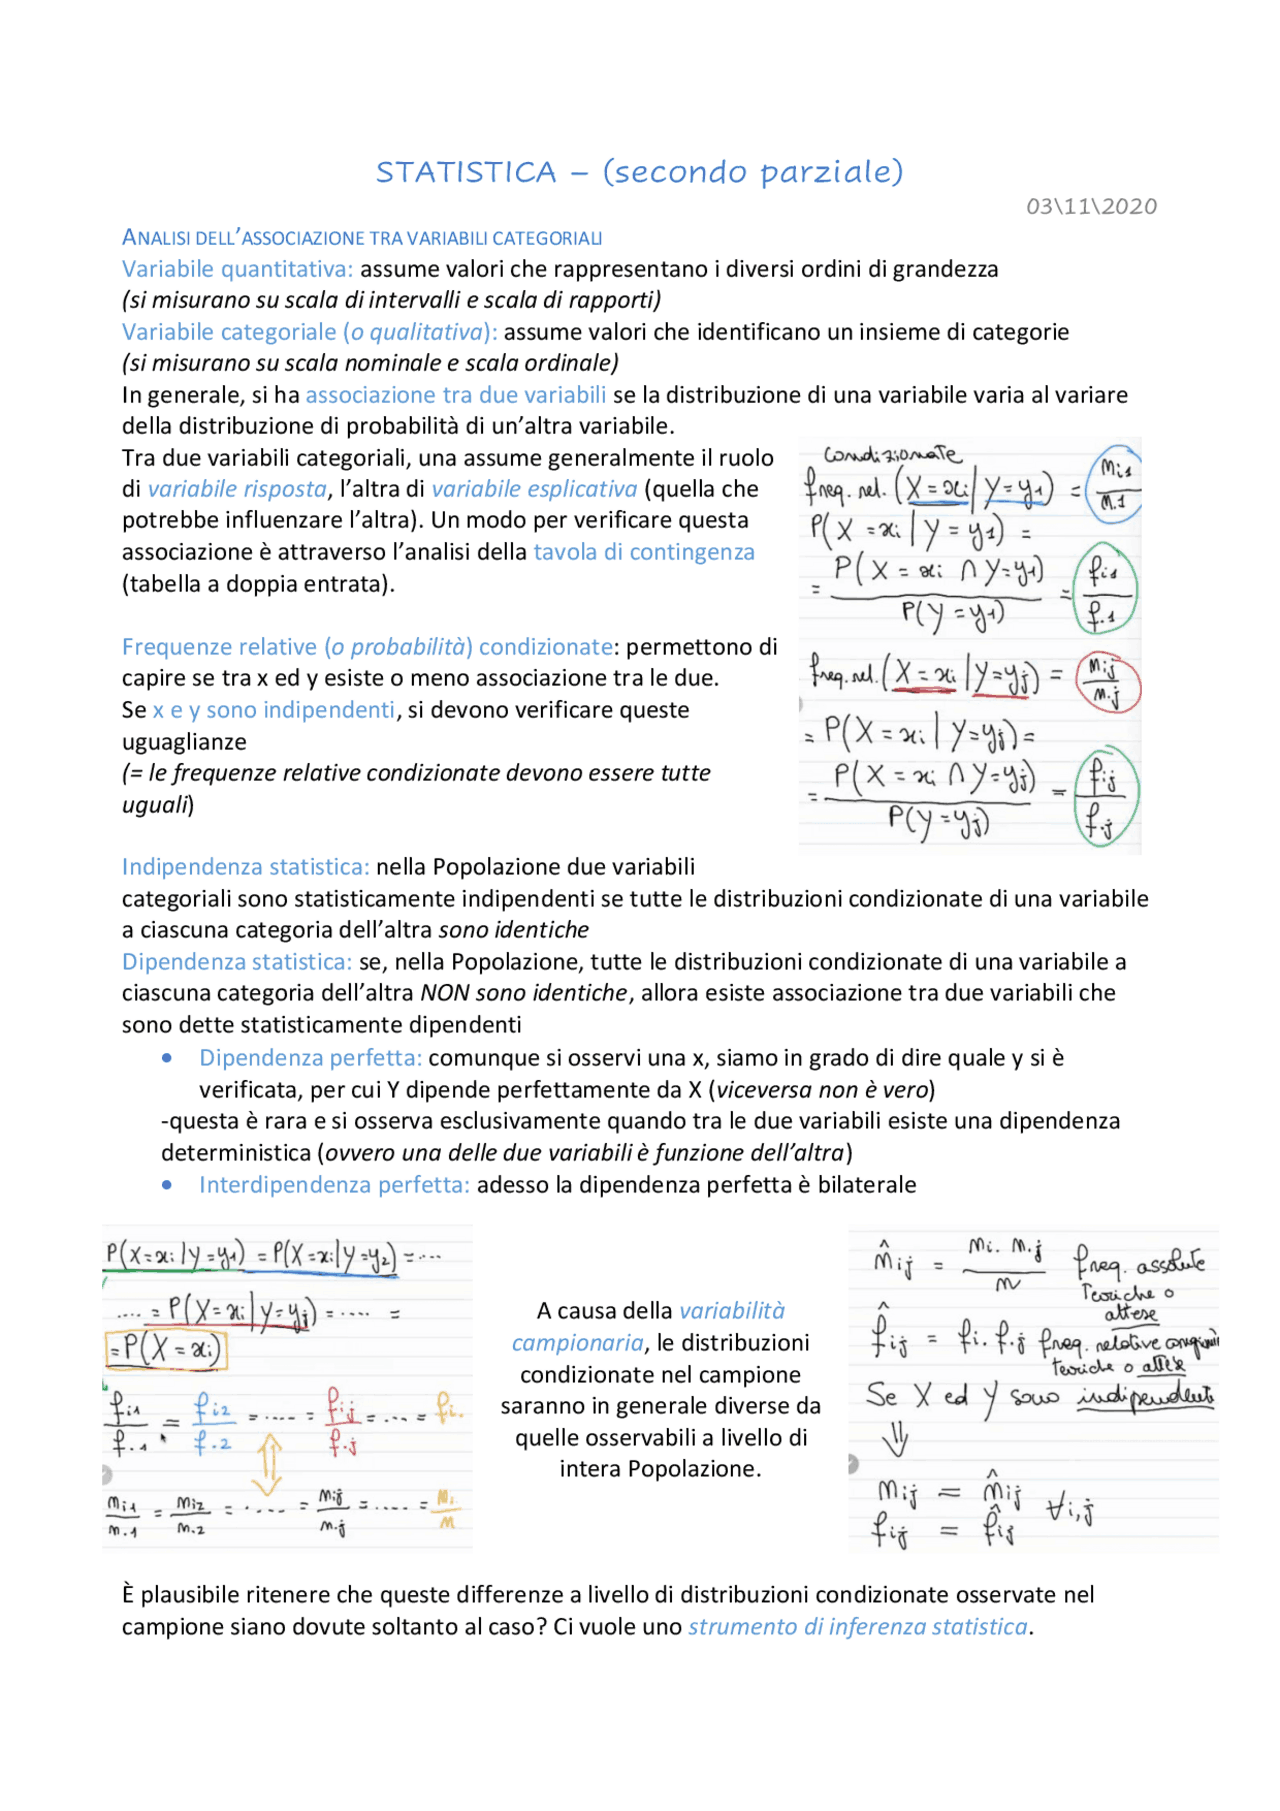 STATISTICA – (secondo parziale)
03\11\2020
ANALISI DELL'ASSOCIAZIONE TRA VARIABILI CATEGORIALI
Variabile quantitativa: assume valori che rappresentano i diversi ordini di grandezza
(si misurano su scala di intervalli e scala di rapporti)
Variabile categoriale (o qualitativa): assume valori che identificano un insieme di categorie
(si misurano su scala nominale e scala ordinale)
In generale, si ha associazione tra due variabili se la distribuzione di una variabile varia al variare
della distribuzione di probabilità di un'altra variabile.
Tra due variabili categoriali, una assume generalmente il ruolo
di variabile risposta, l'altra di variabile esplicativa (quella che
potrebbe influenzare l'altra). Un modo per verificare questa
associazione è attraverso l'analisi della tavola di contingenza
(tabella a doppia entrata).
Frequenze relative (o probabilità) condizionate: permettono di
capire se tra x ed y esiste o meno associazione tra le due.
Se x e y sono indipendenti, si devono verificare queste
uguaglianze
(= le frequenze relative condizionate devono essere tutte
uguali)
condizionate
freq. rel. (X = xi | Y = y1) = ni1 / n.1
P(X = xi | Y = y1) =
= P(X = xi ∩ Y = y1) / P(Y = y1) = fi1 / f.1
freq. rel. (X = xi | Y = yj) = nij / n.j
= P(X = xi | Y = yj) =
= P(X = xi ∩ Y = yj) / P(Y = yj) = fij / f.j
Indipendenza statistica: nella Popolazione due variabili
categoriali sono statisticamente indipendenti se tutte le distribuzioni condizionate di una variabile
a ciascuna categoria dell'altra sono identiche
Dipendenza statistica: se, nella Popolazione, tutte le distribuzioni condizionate di una variabile a
ciascuna categoria dell'altra NON sono identiche, allora esiste associazione tra due variabili che
sono dette statisticamente dipendenti
• Dipendenza perfetta: comunque si osservi una x, siamo in grado di dire quale y si è
verificata, per cui Y dipende perfettamente da X (viceversa non è vero)
-questa è rara e si osserva esclusivamente quando tra le due variabili esiste una dipendenza
deterministica (ovvero una delle due variabili è funzione dell'altra)
• Interdipendenza perfetta: adesso la dipendenza perfetta è bilaterale
P(X = xi | Y = y1) = P(X = xi | Y = y2) = ...
.... = P(X = xi | Y = yj) = .... =
= P(X = xi)
fi1 / f.1 = fi2 / f.2 = .... = fij / f.j = ... = fi.
ni1 / n.1 = ni2 / n.2 = .... = nij / n.j = .... = ni. / n
A causa della variabilità
campionaria, le distribuzioni
condizionate nel campione
saranno in generale diverse da
quelle osservabili a livello di
intera Popolazione.
n̂ij = ni. n.j / n freq. assolute
teoriche o
attese
f̂ij = fi. f.j freq. relative
teoriche o attese
Se X ed Y sono indipendenti
⇓
nij = n̂ij ∀i,j
fij = f̂ij
È plausibile ritenere che queste differenze a livello di distribuzioni condizionate osservate nel
campione siano dovute soltanto al caso? Ci vuole uno strumento di inferenza statistica.